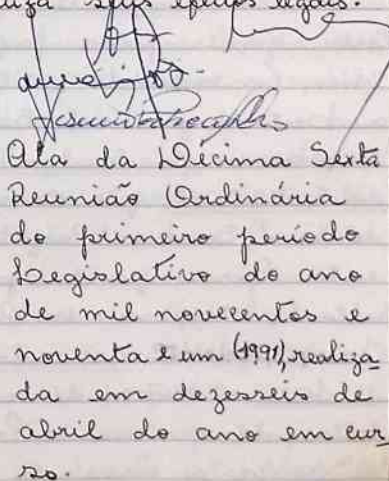 seus efeitos legais.
Ata da Décima Sexta
Reunião Ordinária
do primeiro período
Legislativo do ano
de mil novecentos e
noventa e um (1991), realiza
da em dezesseis de
abril do ano em cur
so.